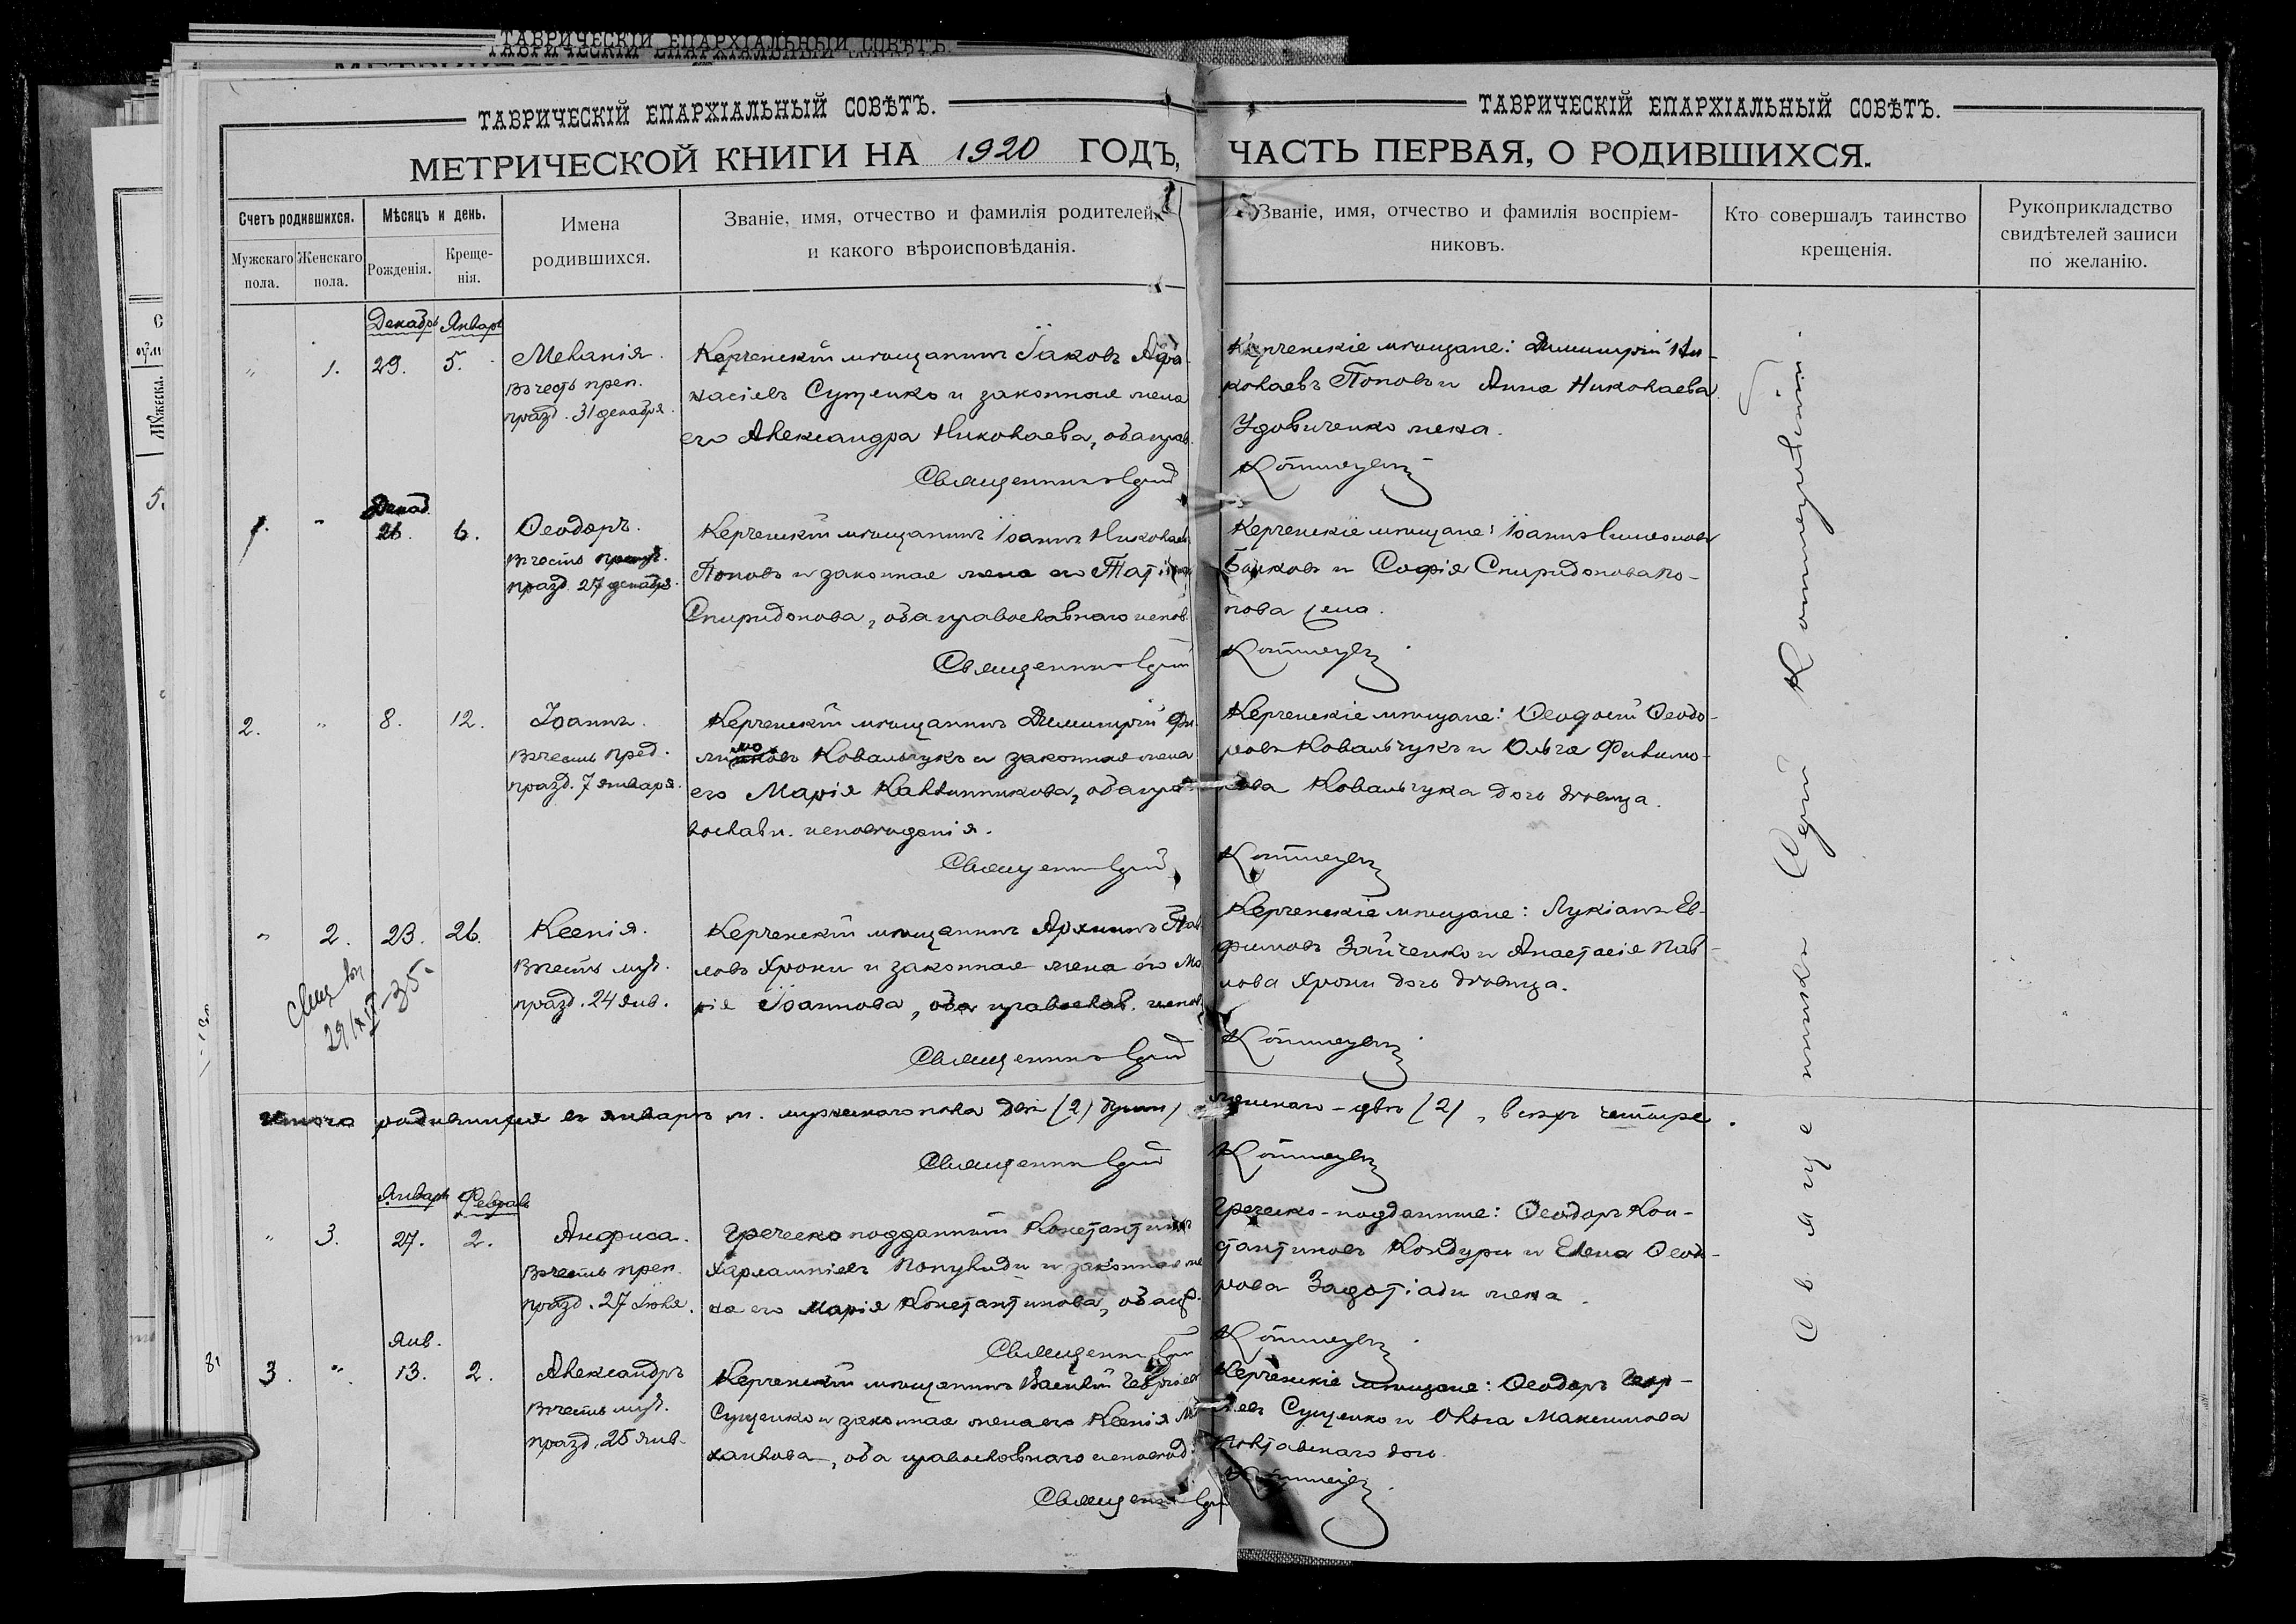 ТАВРИЧЕСКІЙ ЕПАРХІАЛЬНЫЙ СОВѢТЪ.
ТАВРИЧЕСКІЙ ЕПАРХІАЛЬНЫЙ СОВѢТЪ.
ТАВРИЧЕСКІЙ ЕПАРХІАЛЬНЫЙ СОВѢТЪ.
МЕТРИЧЕСКОЙ КНИГИ НА 1920 ГОДЪ,
Счетъ родившихся.
Мужскаго пола.
Женскаго пола.
Мѣсяцъ и день.
Рожденія.
Креще-
нія.
Имена
родившихся.
Званіе, имя, отчество и фамилія родителей,
и какого вѣроисповѣданія.
ТАВРИЧЕСКІЙ ЕПАРХІАЛЬНЫЙ СОВѢТЪ.
ЧАСТЬ ПЕРВАЯ, О РОДИВШИХСЯ.
Званіе, имя, отчество и фамилія воспріем-
никовъ.
Кто совершалъ таинство
крещенія.
Рукоприкладство
свидѣтелей записи
по желанію.
Декабрь Январь
" 1. 29. 5.
Меланія.
Въ честь преп.
празд. 31 декабря.
Керченскій мѣщанинъ Іаковъ Афа-
насіевъ Сущенко и законная жена
его Александра Николаева, оба прав.
Священникъ
Керченскіе мѣщане: Димитрій Ни-
колаевъ Поповъ и Анна Николаева
Удовиченко жена.
Декаб.
1. " 26. 6.
Ѳеодоръ.
Въ честь
празд. 27 декабря.
Керченскій мѣщанинъ Іоаннъ Николаев
Поповъ и законная жена его Татіана
Спиридонова, оба православнаго испов.
Священникъ
Керченскіе мѣщане: Іоаннъ Симеоновъ
и Софія Спиридонова По-
пова жена.
2. " 8. 12.
Іоаннъ.
Въ честь пред.
празд. 7 января.
Керченскій мѣщанинъ Димитрій Фи-
лимоновъ Ковальчукъ и законная жена
его Марія Каллинникова, оба пра-
вославн. исповѣданія.
Священникъ
Керченскіе мѣщане: Ѳеодосій Ѳеодо-
ровъ Ковальчукъ и Ольга Филимо-
нова Ковальчука дочь дѣвица.
" 2. 23. 26.
29/XII-35.
Ксенія.
Въ честь муч.
празд. 24 янв.
Керченскій мѣщанинъ Архипъ Пав-
ловъ Хрони и законная жена его Ма-
рія Іоаннова, оба православ. испов.
Священникъ
Керченскіе мѣщане: Лукіанъ Ев-
фимовъ Зайченко и Анастасія Пав-
лова Хрони дочь дѣвица.
Итого родившихся въ январѣ м. мужескаго пола два (2) души,
женскаго - двѣ (2), всѣхъ четыре.
Священникъ
Январь Февраль
" 3. 27. 2.
Анфиса.
Въ честь преп.
празд. 27 Іюля.
Греческо подданный Константинъ
Харлампіевъ и законная же-
на его Марія Константинова, оба пр.
Священникъ
Греческо-подданные: Ѳеодоръ Кон-
стантиновъ Кондури и Елена Ѳеодо-
рова жена.
Янв.
3. " 13. 2.
Александръ
Въ честь муч.
празд. 25 янв.
Керченскій мѣщанинъ Василій Георгіев
Сущенко и законная жена его Ксенія Ми-
хаилова, оба православнаго исповѣд.
Священникъ
Керченскіе мѣщане: Ѳеодоръ Геор-
гіевъ Сущенко и Ольга Максимова
дочь.
Священникъ